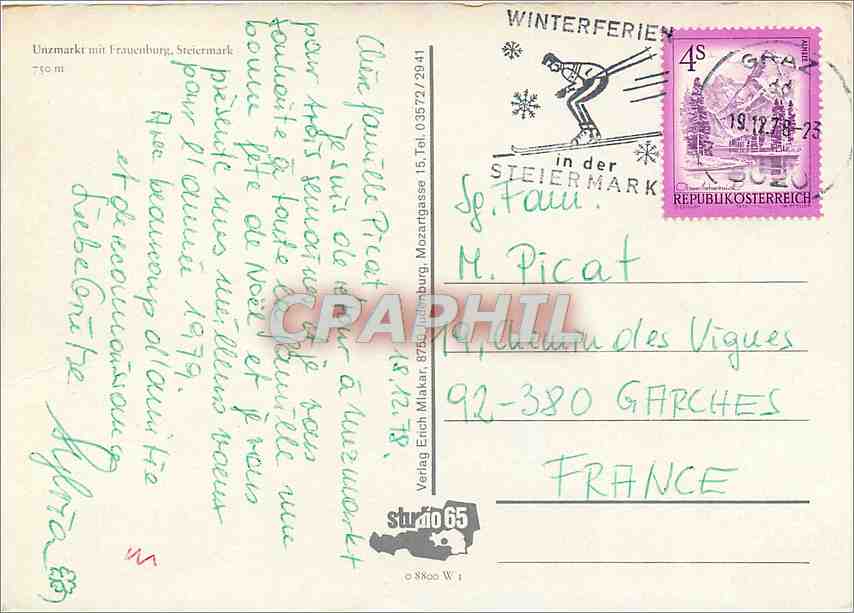 Unzmarkt mit Frauenburg, Steiermark
750 m
18.12.78.
Chère famille Picat
Je suis de retour à Unzmarkt
pour trois semaines et je vous
souhaite à toute la famille une
bonne fête de Noël et je vous
présente mes meilleurs voeux
pour l'année 1979.
Avec beaucoup d'amitié
et de reconnaissance
Liebe Grüße
Sylvia
Verlag Erich Mlakar, 8750 Judenburg, Mozartgasse 15, Tel. 03572/2941
WINTERFERIEN
in der
STEIERMARK
4S
REPUBLIK ÖSTERREICH
GRAZ
19.12.78-23
Sg. Fam.
M. Picat
19, Chemin des Vignes
92-380 GARCHES
FRANCE
studio 65
0 8800 W 1
CPAPHIL